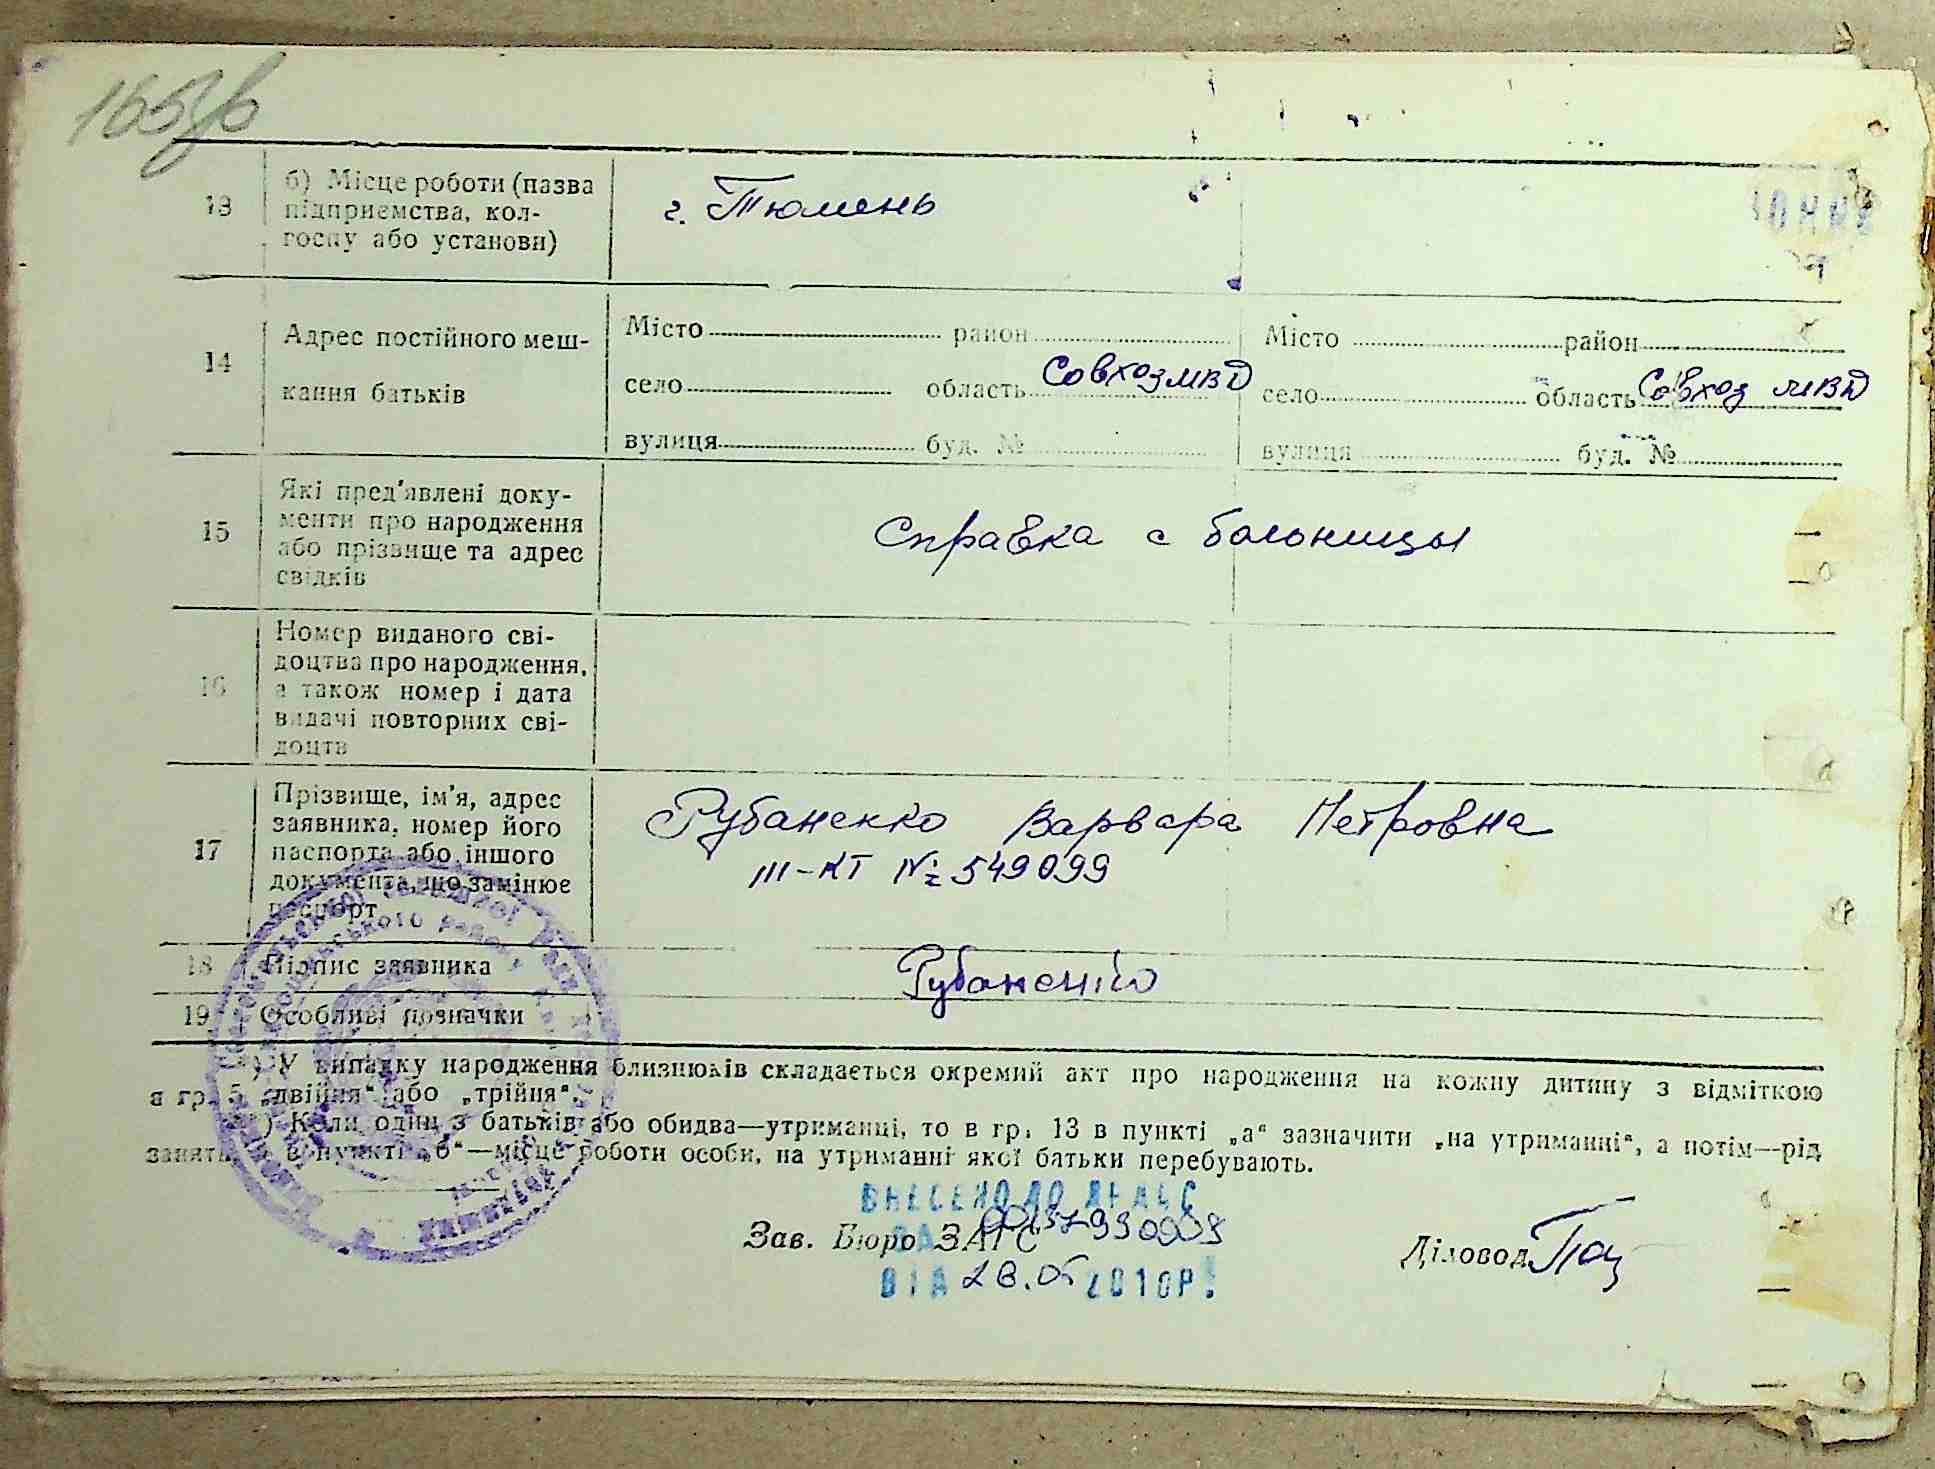 13
б) Місце роботи (назва
підприємства, кол-
госпу або установи)
г. Тюмень
14
Адрес постійного меш-
кання батьків
Місто район
село область Совхоз МВД
вулиця буд. №
Місто район
село область Совхоз МВД
вулиця буд. №
15
Які пред'явлені доку-
менти про народження
або прізвище та адрес
свідків
Справка с больницы
16
Номер виданого сві-
доцтва про народження,
а також номер і дата
видачі повторних сві-
доцтв
17
Прізвище, ім'я, адрес
заявника, номер його
паспорта або іншого
документа, що замінює
паспорт
Рубаненко Варвара Петровна
III-КТ № 549099
18
Підпис заявника
Рубаненко
19
Особливі позначки
) У випадку народження близнюків складається окремий акт про народження на кожну дитину з відміткою
в гр. 5 „двійня“ або „трійня“.
) Коли один з батьків або обидва—утриманці, то в гр. 13 в пункті „а“ зазначити „на утриманні“, а потім—рід
занять, в пункті „б“—місце роботи особи, на утриманні якої батьки перебувають.
ВНЕСЕНО ДО ДРАЦС
Зав. Бюро ЗАГС
ВІД 28.05 2010Р.
Діловод